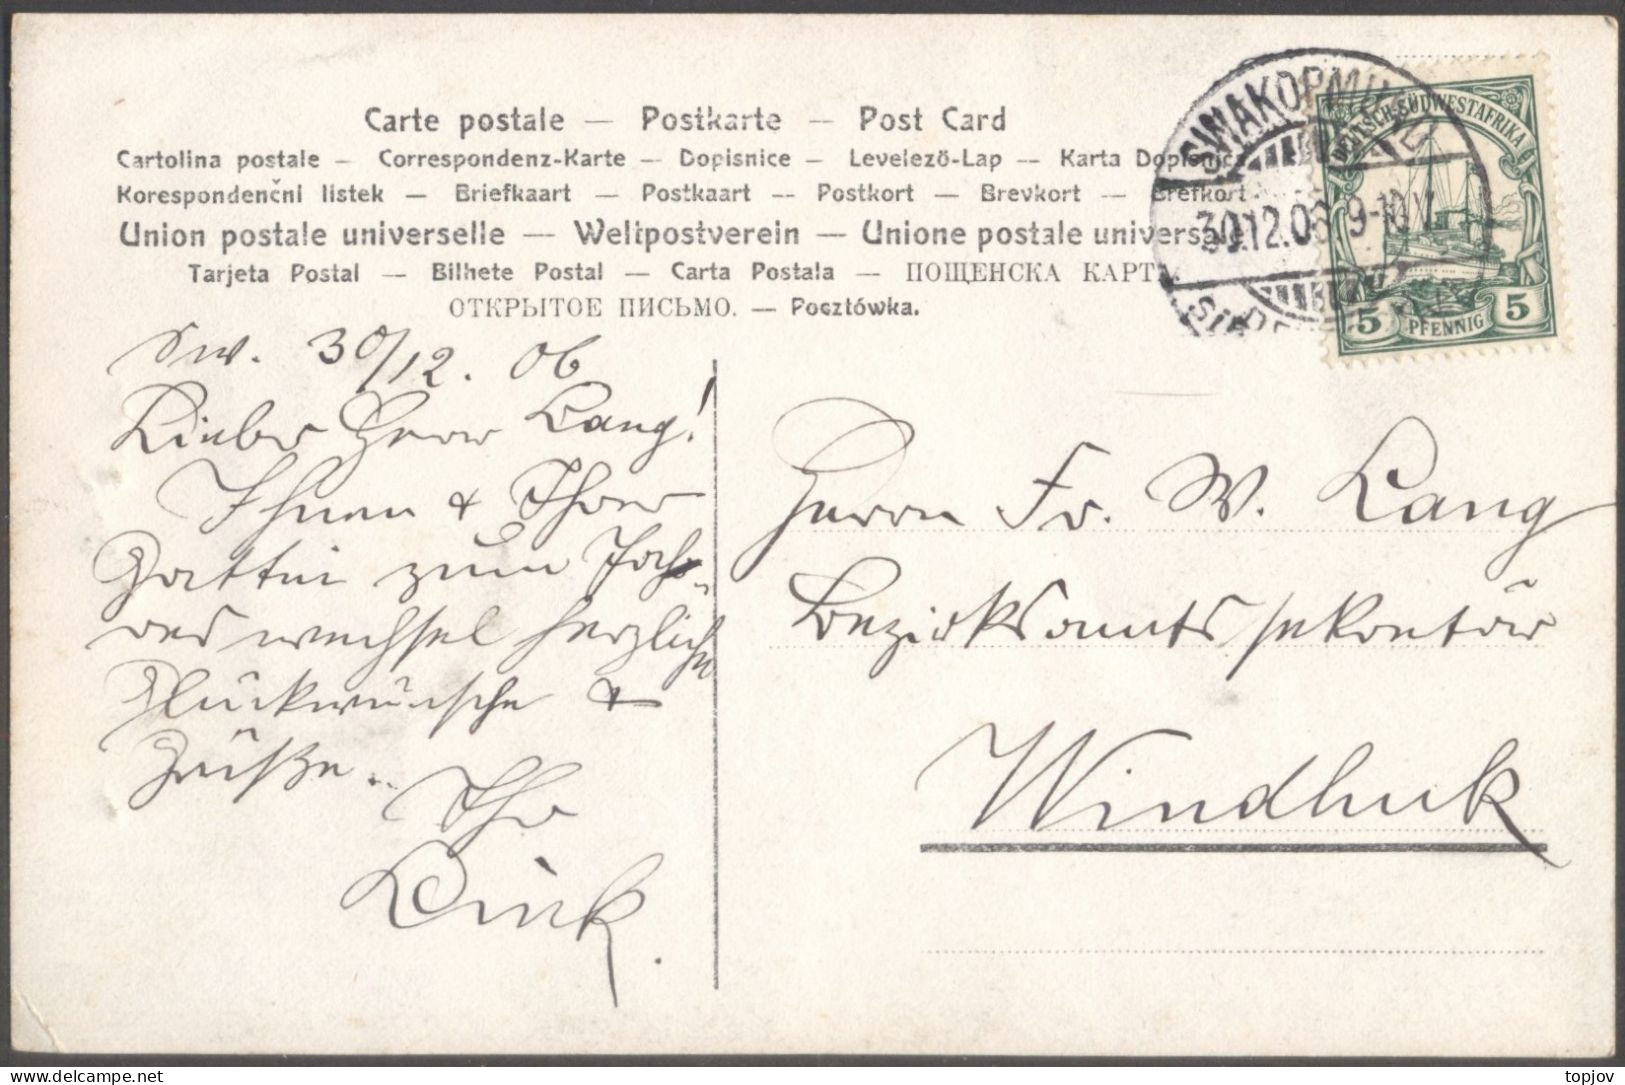 Carte postale — Postkarte — Post Card
Cartolina postale — Correspondenz-Karte — Dopisnice — Levelező-Lap — Karta Dopisnica
Korespondenčni listek — Briefkaart — Postkaart — Postkort — Brevkort — Brefkort
Union postale universelle — Weltpostverein — Unione postale universale
Tarjeta Postal — Bilhete Postal — Carta Postala — ПОЩЕНСКА КАРТА
ОТКРЫТОЕ ПИСЬМО. — Pocztówka.
SWAKOPMUND
30.12.06 9-10 V.
DEUTSCH-SÜDWESTAFRIKA
5 PFENNIG 5
Sw. 30/12. 06
Lieber Herr Lang!
Ihnen & Ihrer
Gattin zum Jah-
reswechsel herzliche
Glückwünsche &
Grüße.
Ihr
Herrn Fr. W. Lang
Bezirksamtssekretär
Windhuk
topjov